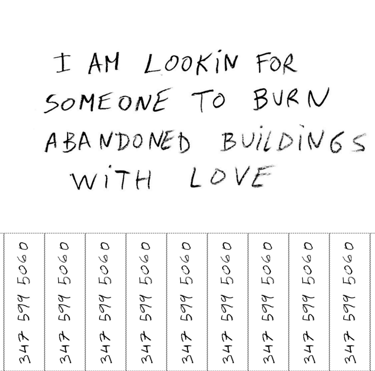 I AM LOOKiN FOR
SOMEONE TO BURN
ABANDONED BUiLDiNGS
WiTH LOVE
347 599 5060
347 599 5060
347 599 5060
347 599 5060
347 599 5060
347 599 5060
347 599 5060
347 599 5060
347 599 5060